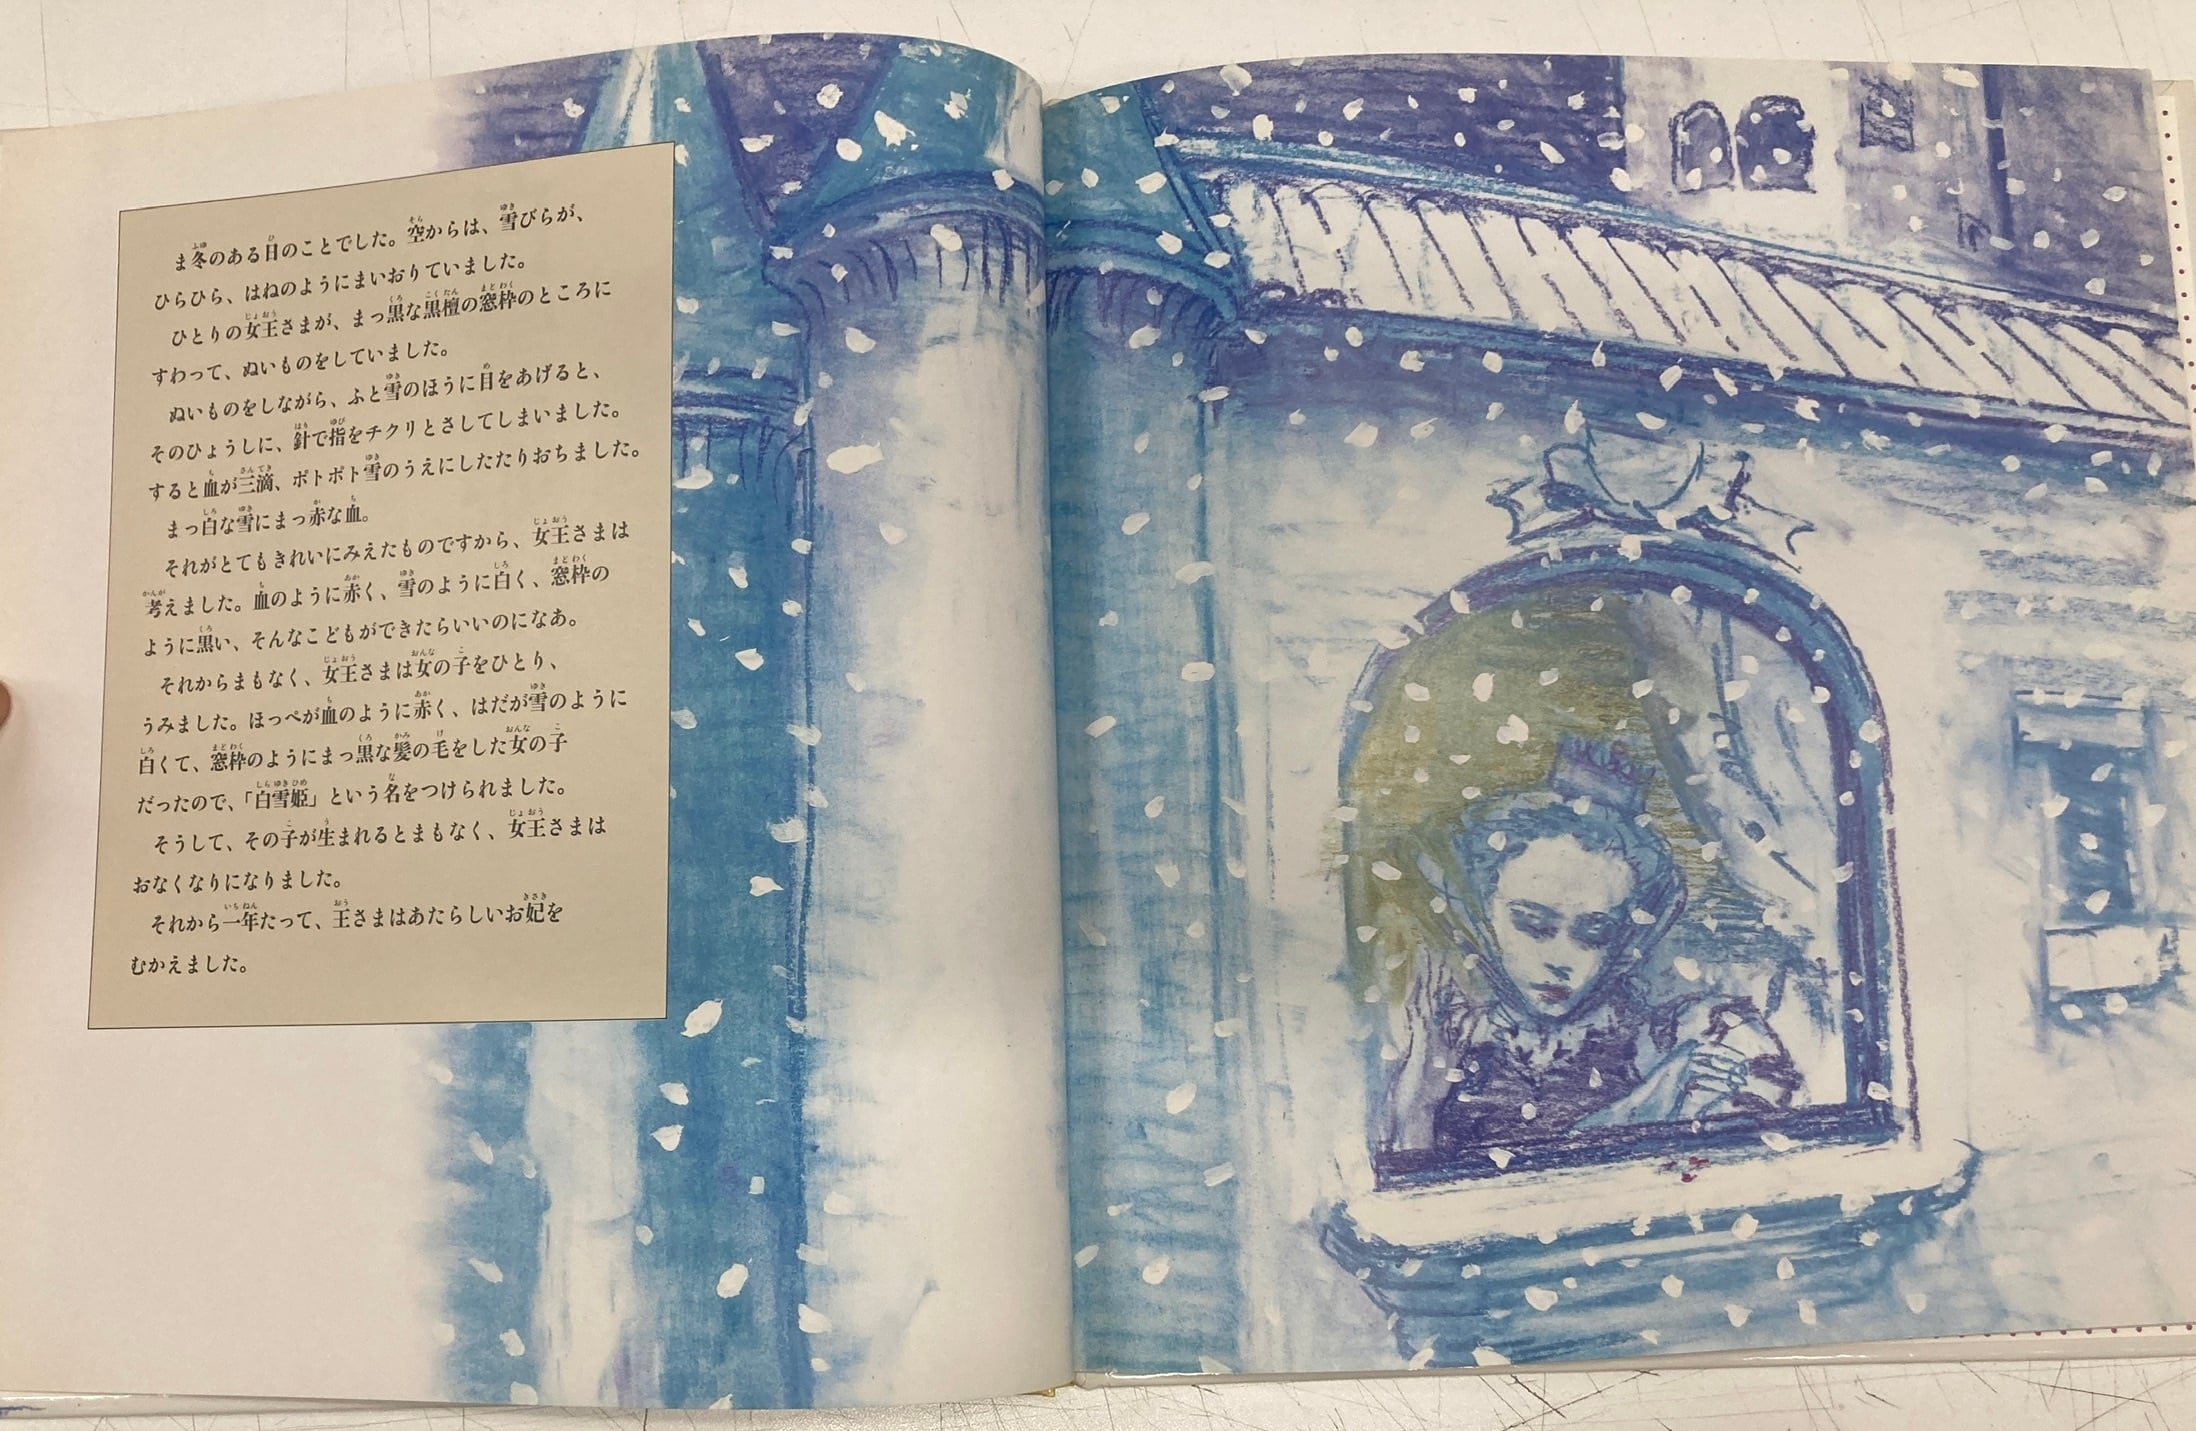 ま冬のある日のことでした。空からは、雪びらが、
ひらひら、はねのようにまいおりていました。
ひとりの女王さまが、まっ黒な黒檀の窓枠のところに
すわって、ぬいものをしていました。
ぬいものをしながら、ふと雪のほうに目をあげると、
そのひょうしに、針で指をチクリとさしてしまいました。
すると血が三滴、ポトポト雪のうえにしたたりおちました。
まっ白な雪にまっ赤な血。
それがとてもきれいにみえたものですから、女王さまは
考えました。血のように赤く、雪のように白く、窓枠の
ように黒い、そんなこどもができたらいいのになあ。
それからまもなく、女王さまは女の子をひとり、
うみました。ほっぺが血のように赤く、はだが雪のように
白くて、窓枠のようにまっ黒な髪の毛をした女の子
だったので、「白雪姫」という名をつけられました。
そうして、その子が生まれるとまもなく、女王さまは
おなくなりになりました。
それから一年たって、王さまはあたらしいお妃を
むかえました。